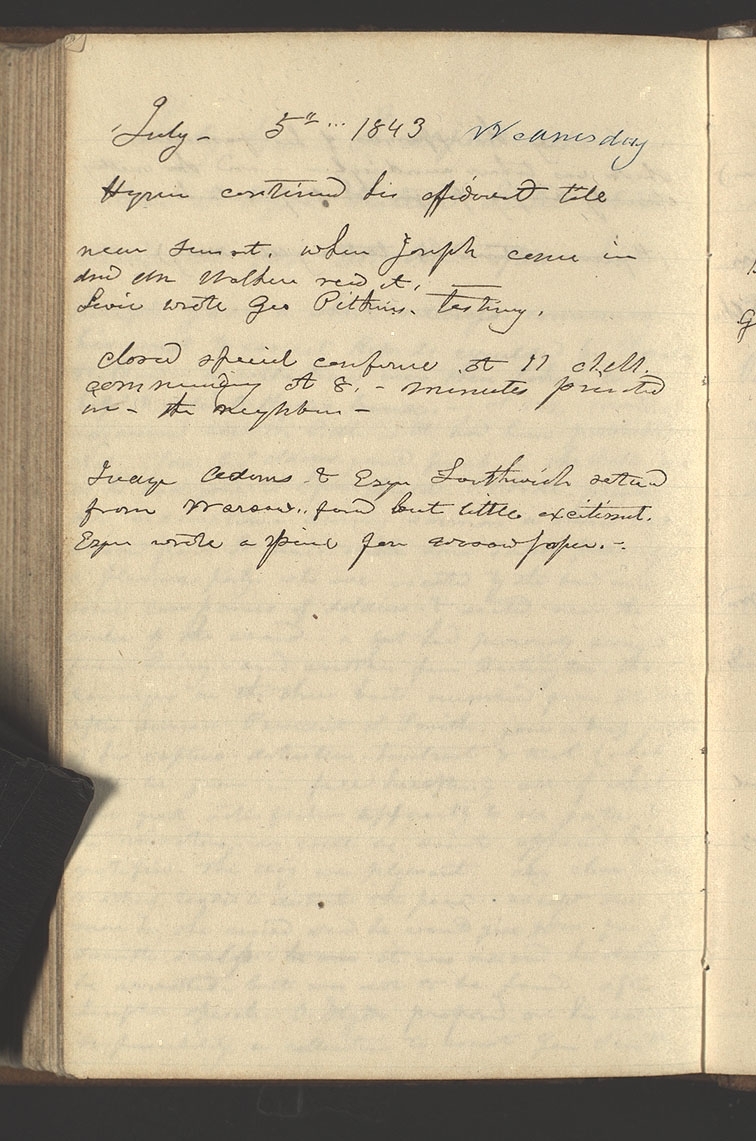 July - 5th ... 1843 Wednesday
Hyrum continued his affidavit till
near sunset. when Joseph came in
and Mr Walker read it,
Levi wrote Geo Pitkins. testimony.
closed special conference at 11
commencing at 8. - minutes printed
in - the neighbor -
Judge Adams & Esqr Southwick returnd
from Warsaw.. found but little excitement.
Esqr wrote a piece for warsaw paper. -